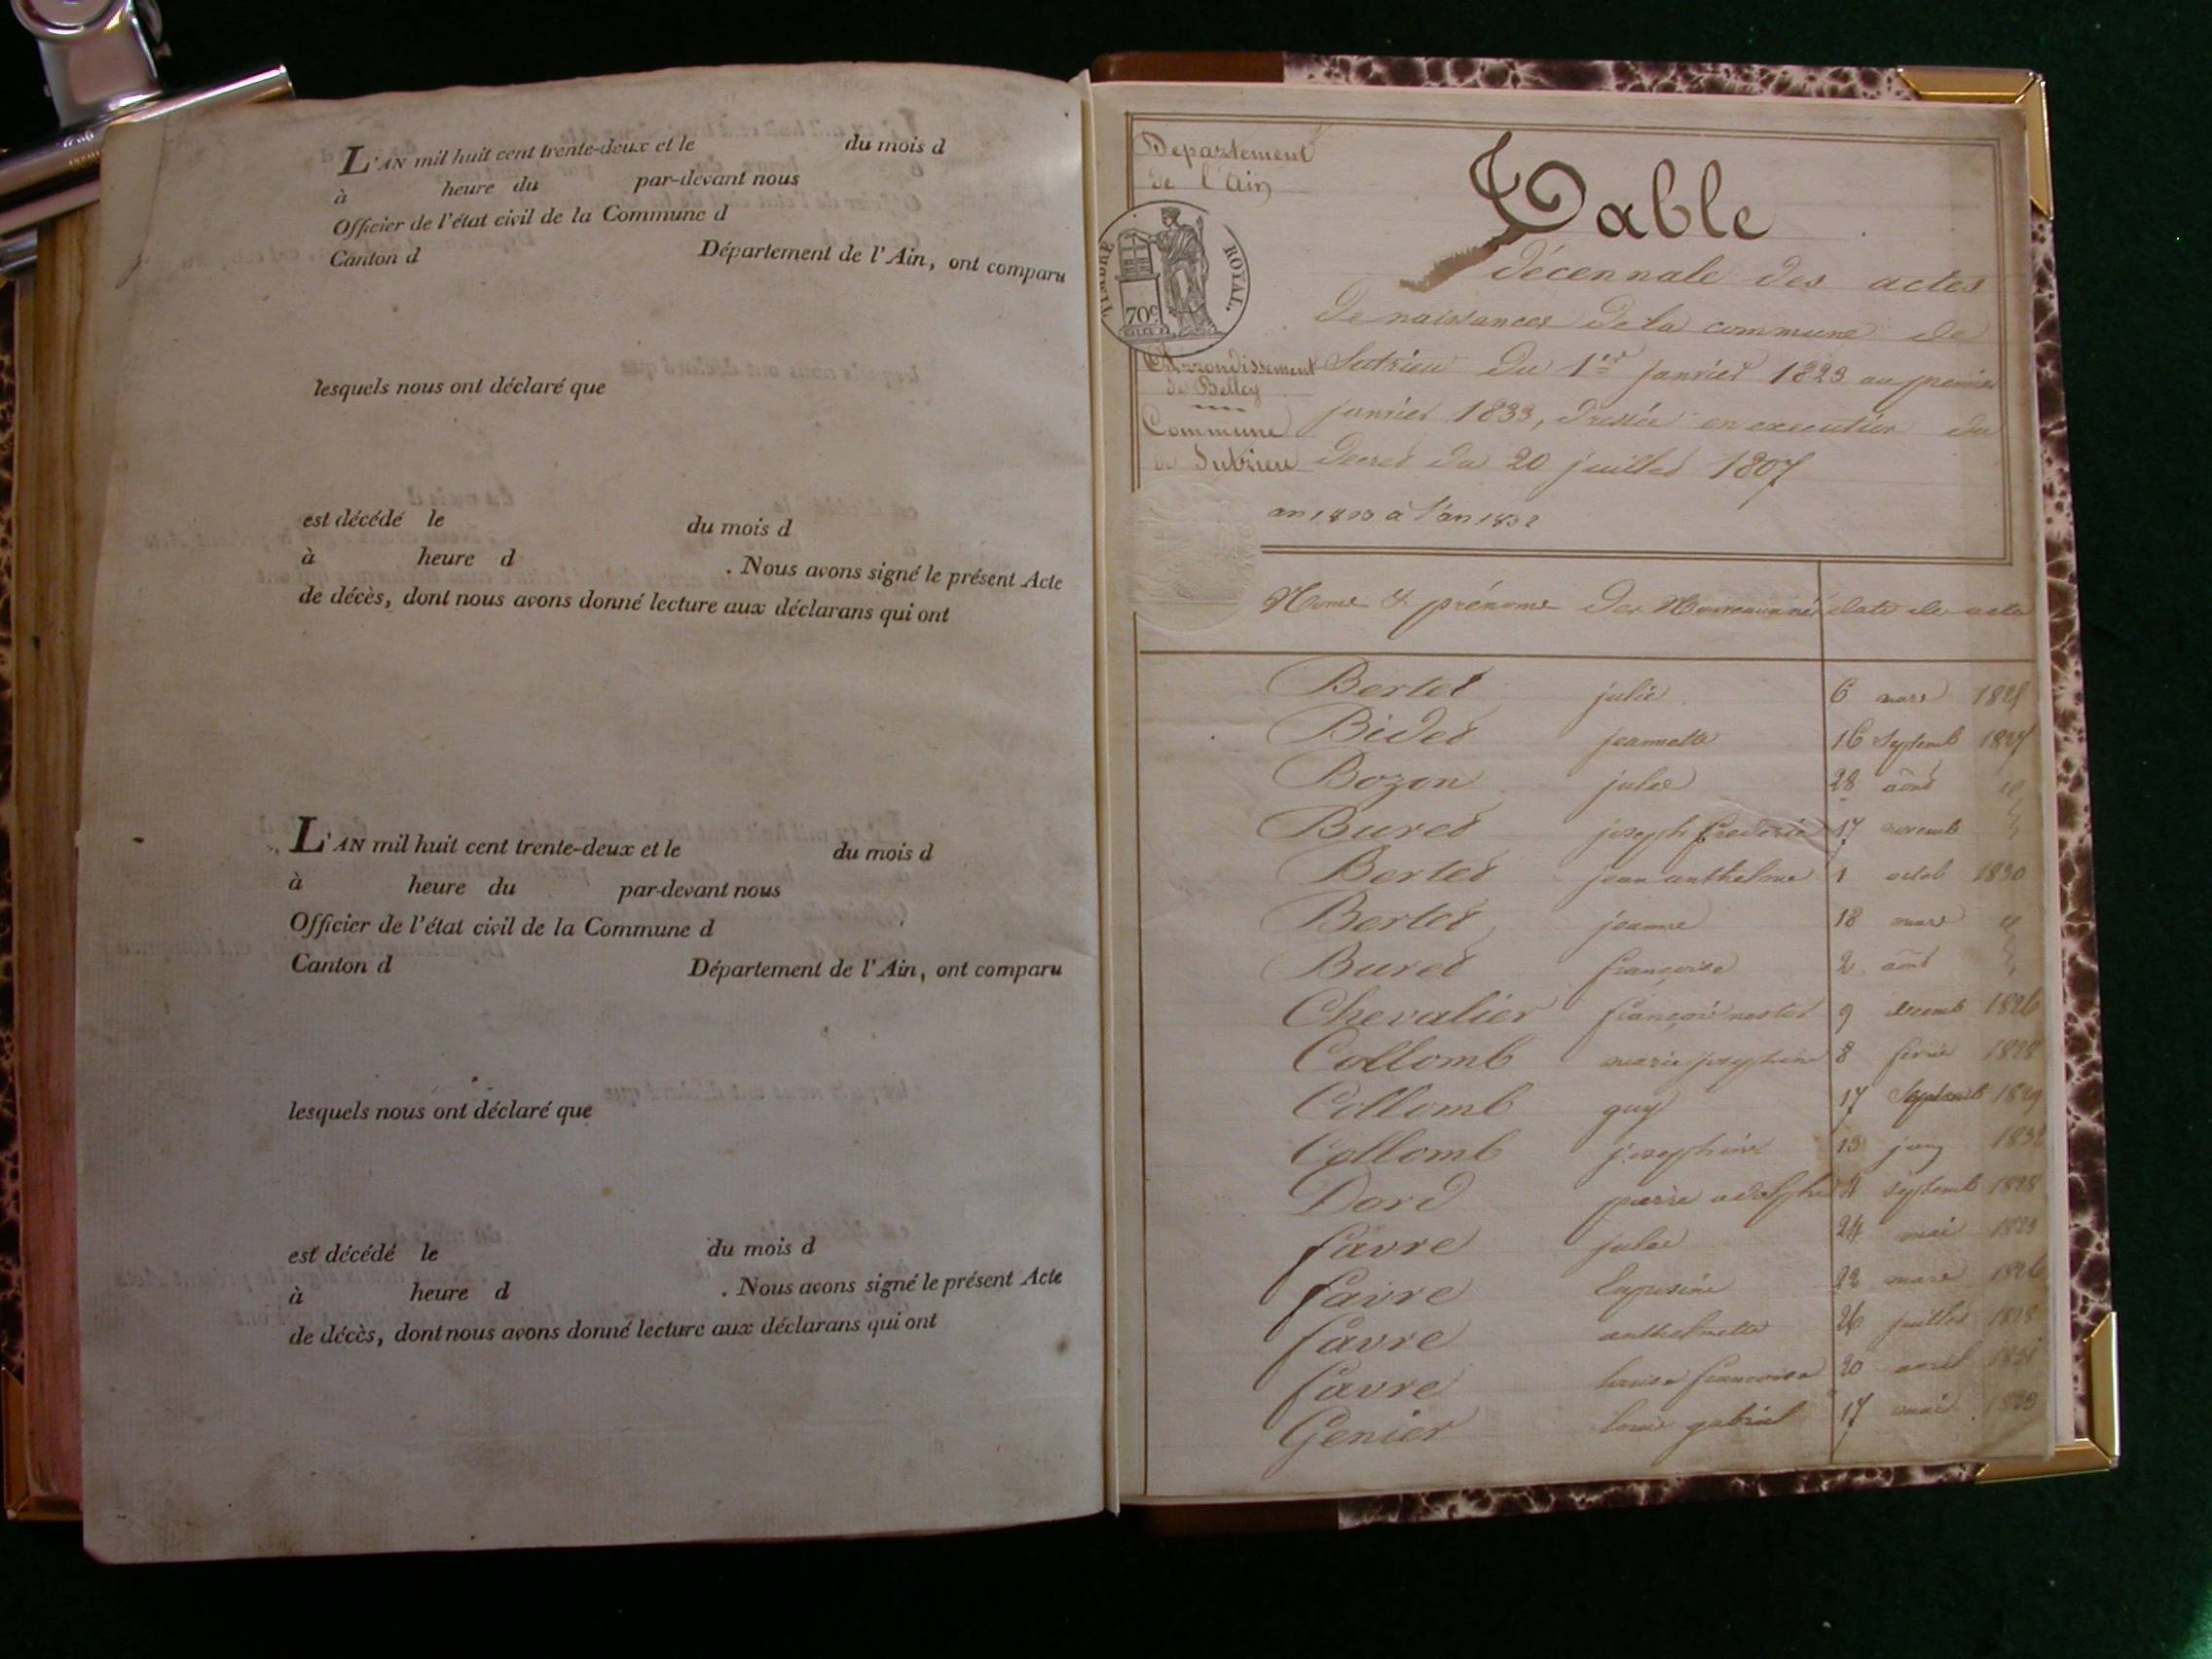 L'AN mil huit cent trente-deux et le du mois d
à heure du par-devant nous
Officier de l'état civil de la Commune d
Canton d Département de l'Ain, ont comparu
lesquels nous ont déclaré que
est décédé le du mois d
à heure d . Nous avons signé le présent Acte
de décès, dont nous avons donné lecture aux déclarans qui ont
L'AN mil huit cent trente-deux et le du mois d
à heure du par-devant nous
Officier de l'état civil de la Commune d
Canton d Département de l'Ain, ont comparu
lesquels nous ont déclaré que
est décédé le du mois d
à heure d . Nous avons signé le présent Acte
de décès, dont nous avons donné lecture aux déclarans qui ont
Departement
de l'Ain
TIMBRE ROYAL.
70c
Arrondissement
de Belley
Commune
de Sutrieu
Table
décennale des actes
de naissances de la commune de
Sutrieu du 1er janvier 1823 au premier
janvier 1833, dressée en execution du
decret du 20 juillet 1807
an 1823 à l'an 1832
Noms & prénoms des Nouveaunés date des acte
Bertet julie 6 mars
Bidet jeannette 16 septemb 1827
Bozon jules 28 août
Buret joseph frederic 17 novemb
Bertet jean anthelme 1 octob 1830
Bertet jeanne 18 mars
Buret françoise 2 août
Chevalier françois nestor 9 decemb 1826
Collomb marie josephine 8 fevrier 1828
Collomb guy 17 Septemb 1829
Collomb josephine 13 juin
Dord pierre adolphe 4 septemb 1828
favre jules 24 mai 1823
faivre 22 mars 1826
favre anthelmette 26 juillet 1828
favre louise francoise 20 avril
Genier louis gabriel 17 mai 1823